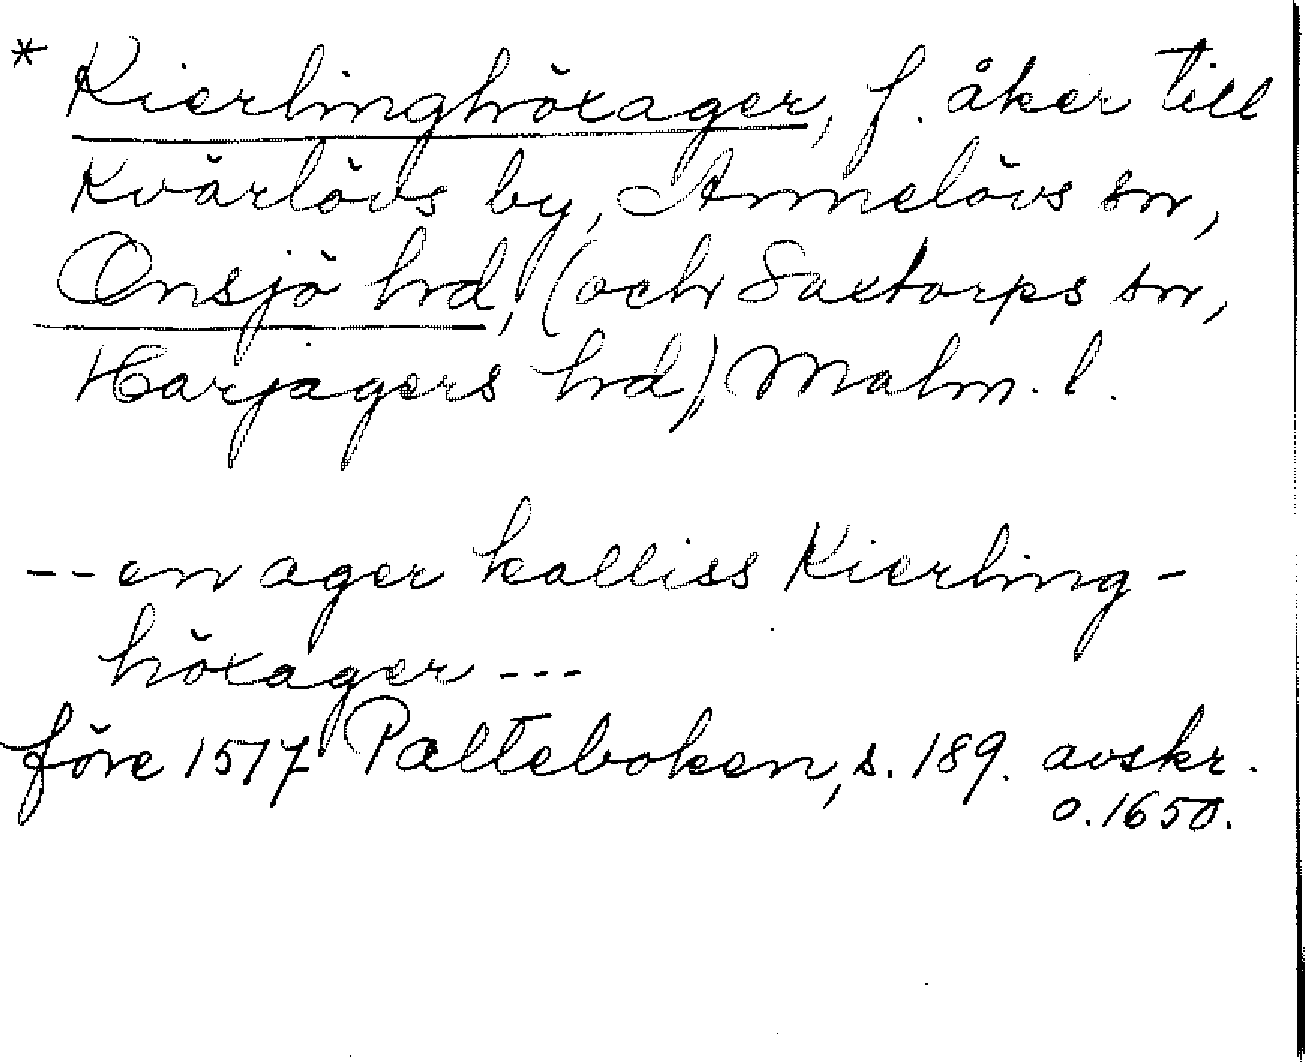 * Kierlinghöxager, f. åker till
Kvärlövs by, Annelövs sn,
Onsjö hd, (och Saxtorps sn,
Harjagers hd), Malm. l.
-- en ager kalliss Kierling-
höxager ---
före 1517 Palteboken, s. 189. avskr.
o. 1650.